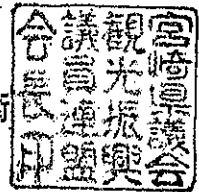 宮崎県議会
觀光振興
議員連盟
会長印